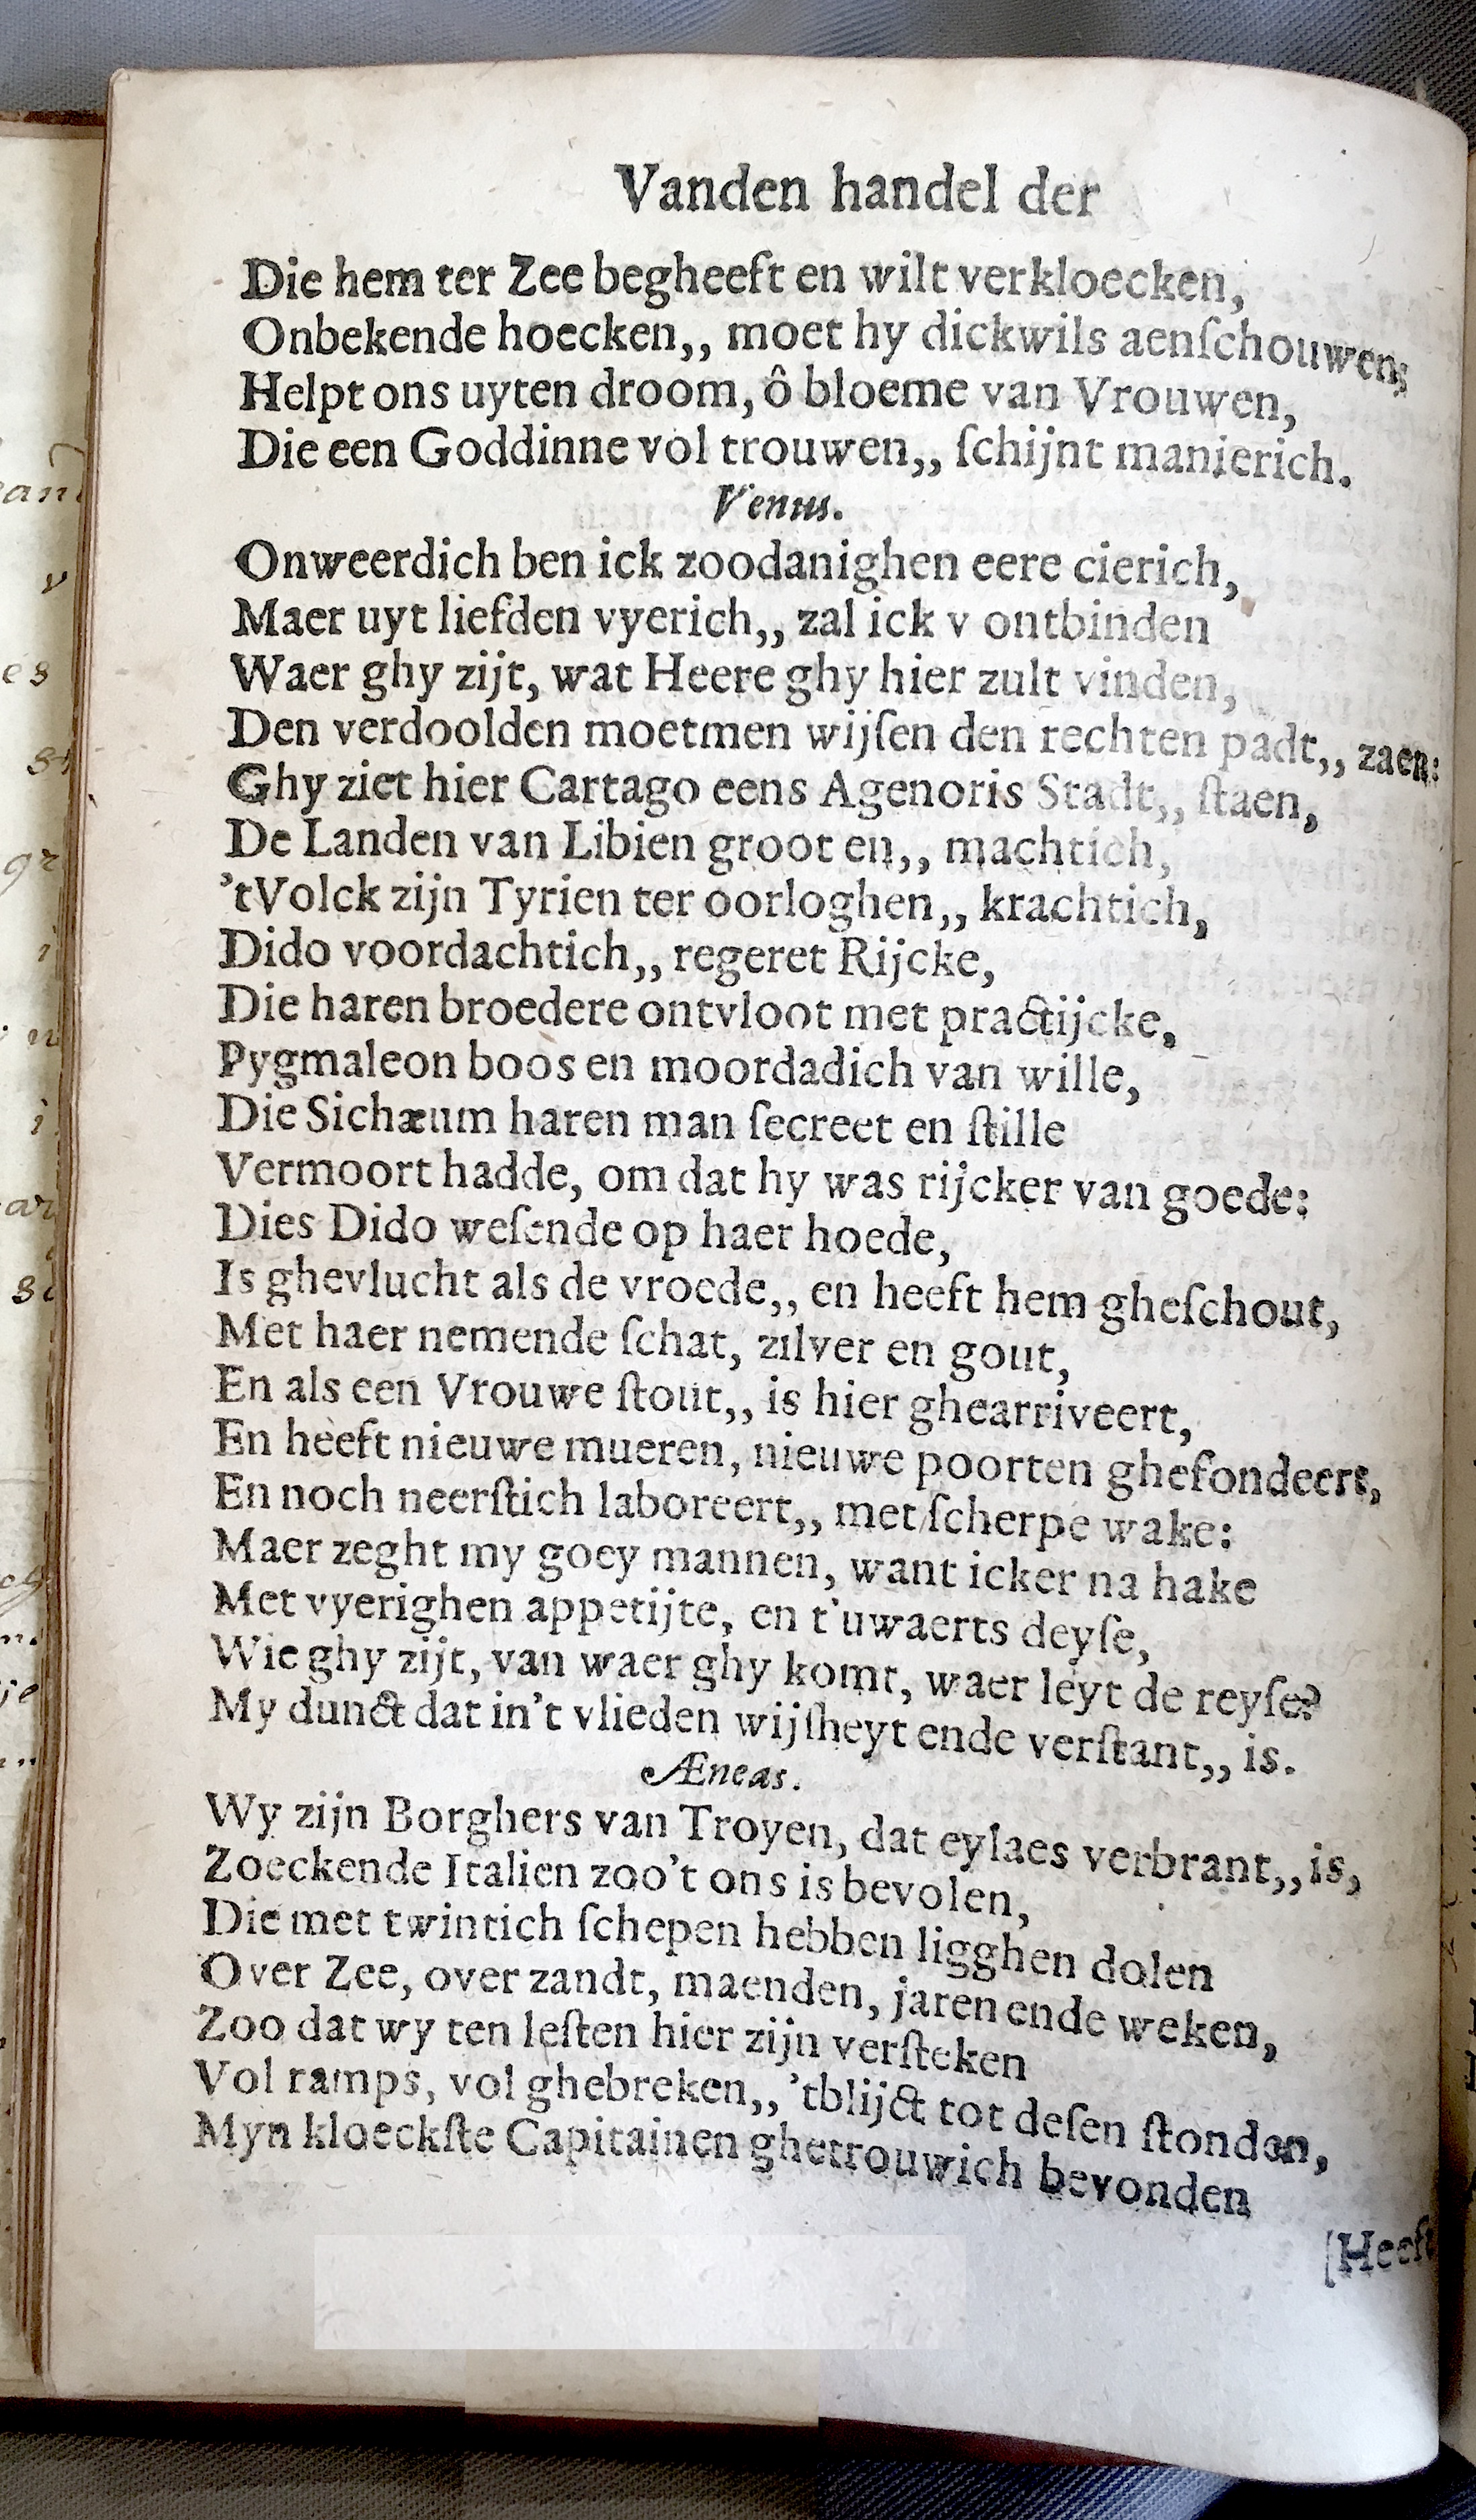 Vanden handel der
Die hem ter Zee begheeft en wilt verkloecken,
Onbekende hoecken,, moet hy dickwils aenſchouwen;
Helpt ons uyten droom, ô bloeme van Vrouwen,
Die een Goddinne vol trouwen,, ſchijnt manierich.
Venus.
Onweerdich ben ick zoodanighen eere cierich,
Maer uyt liefden vyerich,, zal ick v ontbinden
Waer ghy zijt, wat Heere ghy hier zult vinden,
Den verdoolden moetmen wijſen den rechten padt,, zaen:
Ghy ziet hier Cartago eens Agenoris Stadt,, ſtaen,
De Landen van Libien groot en,, machtich,
'tVolck zijn Tyrien ter oorloghen,, krachtich,
Dido voordachtich,, regeret Rijcke,
Die haren broedere ontvloot met practijcke,
Pygmaleon boos en moordadich van wille,
Die Sichæum haren man ſecreet en ſtille
Vermoort hadde, om dat hy was rijcker van goede:
Dies Dido weſende op haer hoede,
Is ghevlucht als de vroede,, en heeft hem gheſchout,
Met haer nemende ſchat, zilver en gout,
En als een Vrouwe ſtout,, is hier ghearriveert,
En heeft nieuwe mueren, nieuwe poorten ghefondeert,
En noch neerſtich laboreert,, met ſcherpe wake:
Maer zeght my goey mannen, want icker na hake
Met vyerighen appetijte, en t'uwaerts deyſe,
Wie ghy zijt, van waer ghy komt, waer leyt de reyſe?
My dunct dat in't vlieden wijſheyt ende verſtant,, is.
Æneas.
Wy zijn Borghers van Troyen, dat eylaes verbrant,, is,
Zoeckende Italien zoo't ons is bevolen,
Die met twintich ſchepen hebben ligghen dolen
Over Zee, over zandt, maenden, jaren ende weken,
Zoo dat wy ten leſten hier zijn verſteken
Vol ramps, vol ghebreken,, 'tblijct tot deſen ſtonden,
Myn kloeckſte Capitainen ghetrouwich bevonden
[Heeft